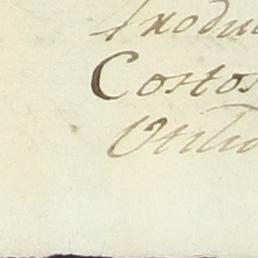 Produ
Costos
Utilid